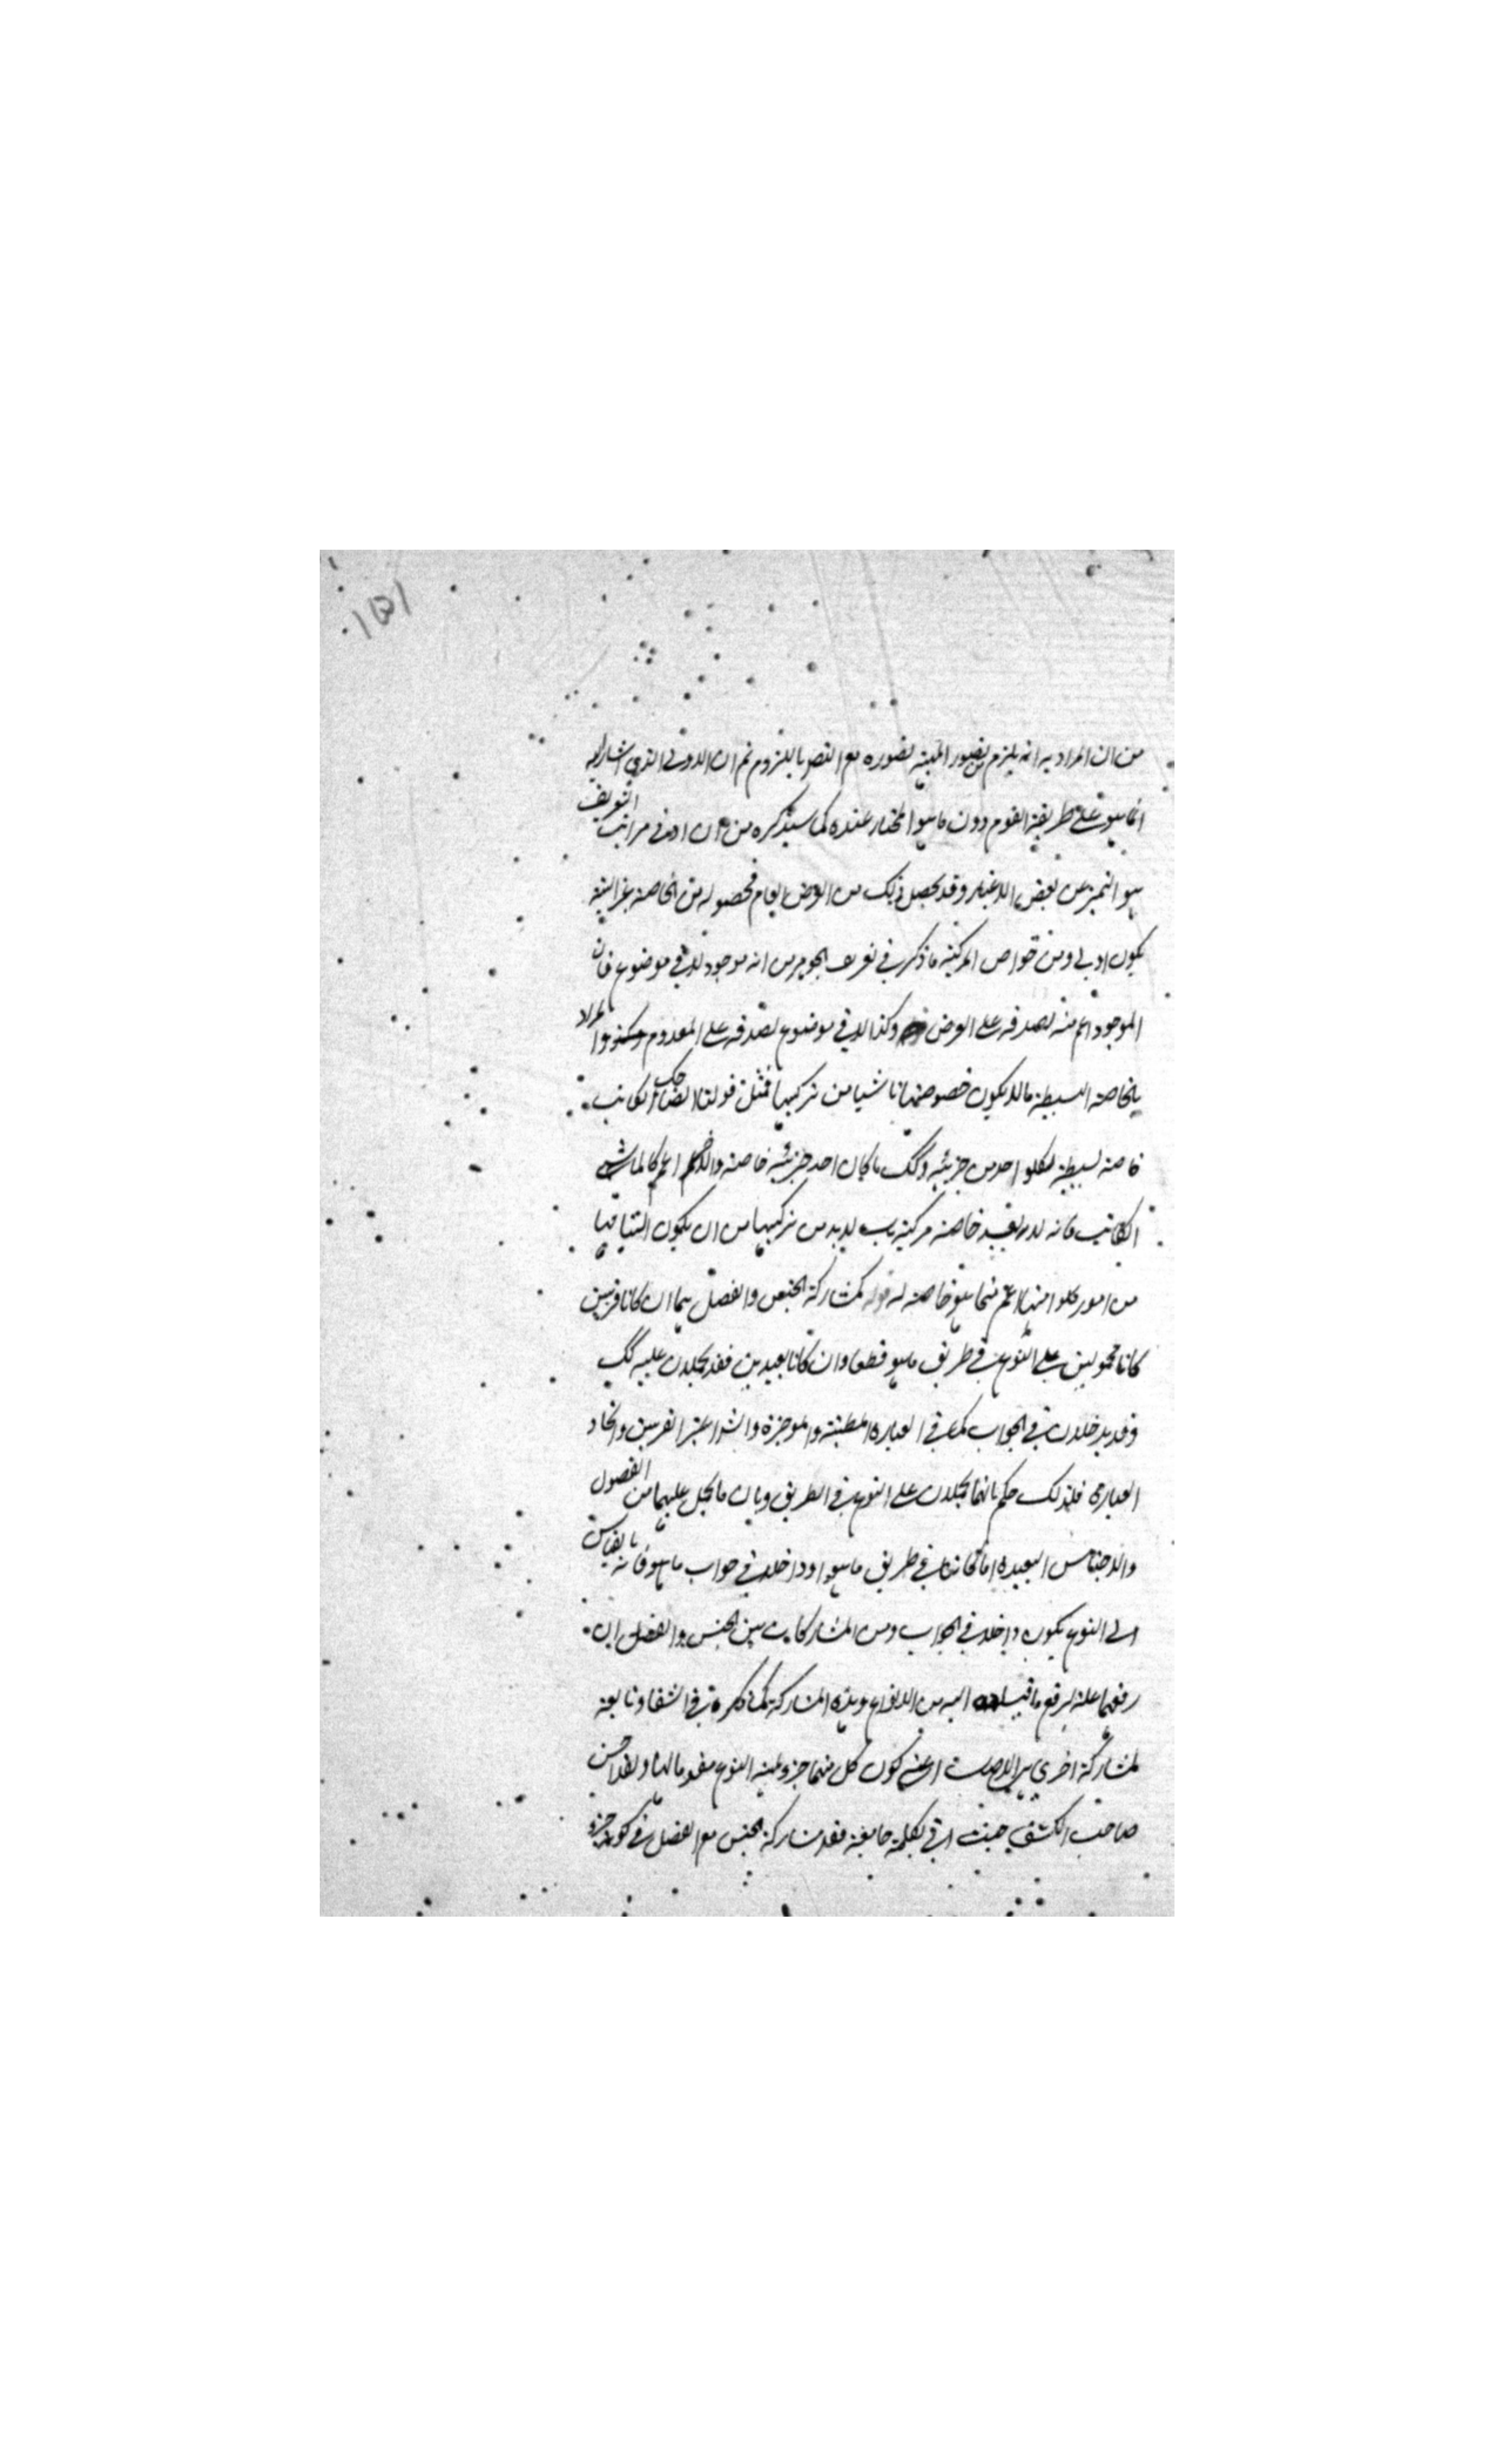 ١٥١
من ان المراد به انه يلزم من تصور المهية تصوره مع التصر باللزوم ثم ان الاولى الذي اشار اليه
انما هو على طريقة القوم دون ما هو المختار عنده كما سيذكره من ان ادنى مراتب التعريف
هو التميز عن بعض الاغيار وقد يحصل ذلك من العرض العام فحصوله من الخاصة الغير البينة
يكون اولى ومن خواص المركبة ما ذكر في تعريف الجوهر من انه موجود لا في موضوع فان
الموجود اعم منه لصدقه على العرض وكذا لا في موضوع لصدقه على المعدوم والمراد
بالخاصة البسيطة ما لا يكون خصوصيتها ناشيا من تركيبها فمثل قولنا الضاحك الكاتب
خاصة بسيطة لكل واحد من جزئيه وكك ما كان احد جزئيه خاصة والاخر اعم كالماشي
الكاتب فانه لا يفيد خاصة مركبة بل لا بد من تركيبها من ان يكون التيامها
من امور كل منها اعم مما هو خاصة له قوله كمشاركة الجنس والفصل هما ان كانا قريبين
كانا محمولين على النوع في طريق ما هو قطعا وان كانا بعيدين فقد يحملان عليه كك
وقد يدخلان في الجواب كما في العبارة المطنبة والموجزة والشارح اعتبر القريبين واتحاد
العبارة فلذلك حكم بانهما يحملان على النوع في الطريق وبان ما يحمل عليهما من الفصول
والاجناس البعيدة اما كانتا في طريق ما هو او داخلا في جواب ما هو فانه بالقياس
الى النوع يكون داخلا في الجواب ومن المشاركات بين الجنس والفصل ان
رفعهما علة لرفع ما قيسا اليه من الانواع وهذه المشاركة كما ذكره في الشفا تابعة
لمشاركة اخرى هي الاصل اعني كون كل منهما جزء لمهية النوع مقوما لها ولقد احسن
صاحب الكشف حيث اتى بكلمة جامعة فقد مشاركة الجنس مع الفصل في كونه جزء